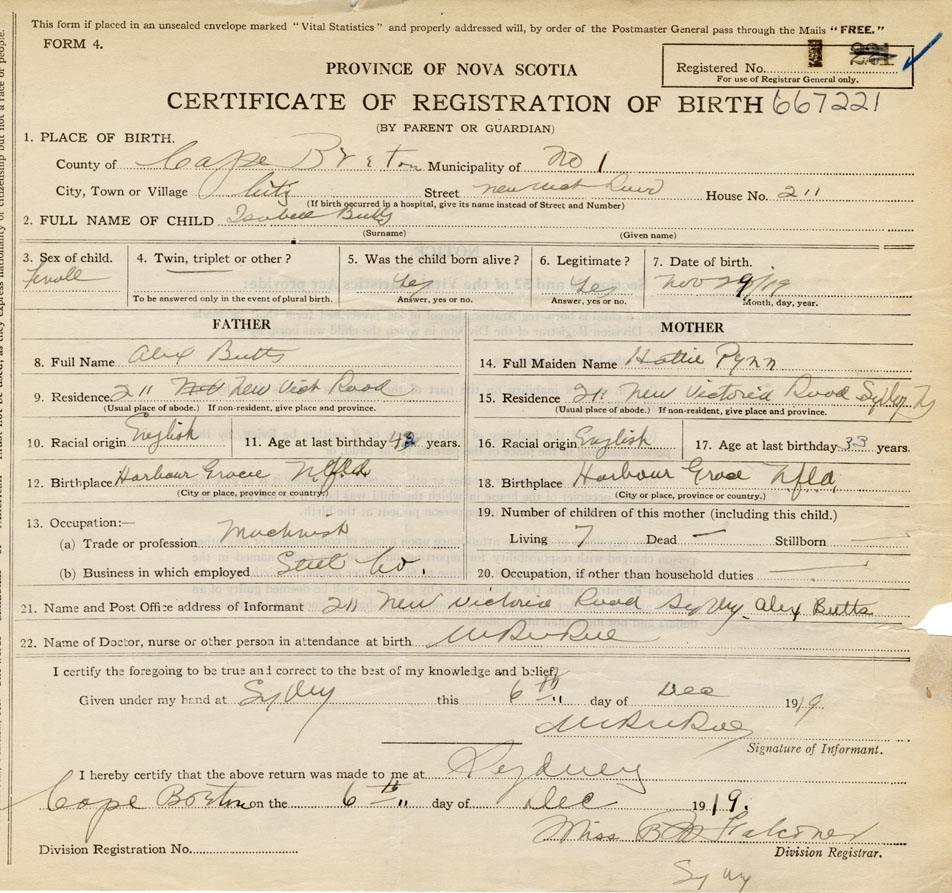 This form if placed in an unsealed envelope marked "Vital Statistics" and properly addressed will, by order of the Postmaster General pass through the Mails "FREE."
FORM 4.
Registered No. 221
For use of Registrar General only.
PROVINCE OF NOVA SCOTIA
CERTIFICATE OF REGISTRATION OF BIRTH 667221
(BY PARENT OR GUARDIAN)
1. PLACE OF BIRTH.
County of Cape Breton Municipality of No 1
City, Town or Village City Street New Vict Road House No. 211
(If birth occurred in a hospital, give its name instead of Street and Number)
2. FULL NAME OF CHILD Isabell Butts
(Surname) (Given name)
3. Sex of child. 4. Twin, triplet or other? 5. Was the child born alive? 6. Legitimate? 7. Date of birth.
Female Yes Yes Nov 29/19
To be answered only in the event of plural birth. Answer, yes or no. Answer, yes or no. Month, day, year.
FATHER
8. Full Name Alex Butts
9. Residence 211 New Vict Road
(Usual place of abode.) If non-resident, give place and province.
10. Racial origin English 11. Age at last birthday 42 years.
12. Birthplace Harbour Grace Nfld
(City or place, province or country.)
13. Occupation:—
(a) Trade or profession Machinist
(b) Business in which employed Steel Co.
MOTHER
14. Full Maiden Name Hattie Pynn
15. Residence 211 New Victoria Road Sydney NS
(Usual place of abode.) If non-resident, give place and province.
16. Racial origin English 17. Age at last birthday 33 years.
18. Birthplace Harbour Grace Nfld.
(City or place, province or country.)
19. Number of children of this mother (including this child.)
Living 7 Dead — Stillborn —
20. Occupation, if other than household duties —
21. Name and Post Office address of Informant 211 New Victoria Road Sydney. Alex Butts
22. Name of Doctor, nurse or other person in attendance at birth
I certify the foregoing to be true and correct to the best of my knowledge and belief.
Given under my hand at Sydney this 6th day of Dec 1919.
Signature of Informant.
I hereby certify that the above return was made to me at Sydney
Cape Breton on the 6th day of Dec 1919.
Miss B M Falconer
Division Registration No. Division Registrar.
Sydney